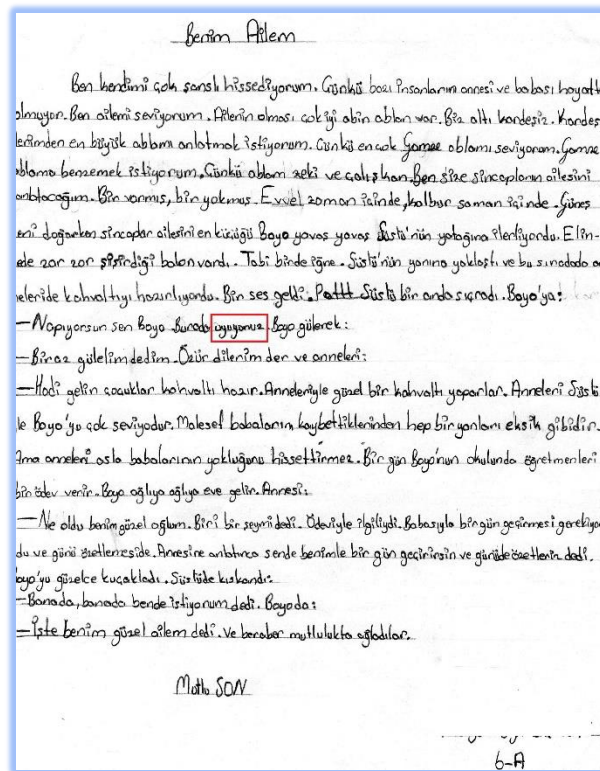 Benim Ailem
Ben kendimi çok şanslı hissediyorum. Çünkü bazı insanların annesi ve babası hayatt
olmuyor. Ben ailemi seviyorum. Ailenin olması çok iyi abin ablan var. Biz altı kardeşiz. Kardeş
lerimden en büyük ablamı anlatmak istiyorum. Çünkü en çok Gamze ablamı seviyorum. Gamze
ablama benzemek istiyorum. Çünkü ablam zeki ve çalışkan. Ben size sincapların ailesini
anlatacağım. Bir varmış, bir yokmuş. Evvel zaman içinde, kalbur saman içinde. Güneş
eni doğarken sincapar ailesini en küçüğü Boyo yavaş yavaş Süstü'nün yatağına ilerliyordu. Elin-
de zar zor şişirdiği balon vardı. Tabi birde iğne. Süstü'nün yanına yaklaştı ve bu sıradada an
neleride kahvaltıyı hazırlıyordu. Bir ses geldi. Pattt Süstü bir anda sıçradı. Boyo'ya:
—Napıyorsun sen Boyo Burada uyuyoruz. Boyo gülerek:
—Biraz gülelim dedim. Özür dilerim der ve anneleri:
—Hadi gelin çocuklar kahvaltı hazır. Anneleriyle güzel bir kahvaltı yaparlar. Anneleri Süstü
le Boyo'yu çok seviyodur. Malesef babalarını kaybettiklerinden hep bir yanları eksik gibidir.
Ama anneleri asla babalarının yokluğunu hissettirmez. Bir gün Boyo'nun okulunda öğretmenleri
bir ödev verir. Boyo ağlıya ağlıya eve gelir. Annesi:
—Ne oldu benim güzel oğlum. Biri bir şeymi dedi. Ödeviyle ilgiliydi. Babasıyla bir gün geçirmesi gerekiyo
du ve günü özetlemeside. Annesine anlatınca sende benimle bir gün geçirirsin ve günüde özetlerin dedi.
Boyo'yu güzelce kucakladı. Süstüde kıskandı:
—Banada, banada bende istiyorum dedi. Boyoda:
—İşte benim güzel ailem dedi. ve beraber mutlulukta ağladılar.
Mutlu SON
6-A